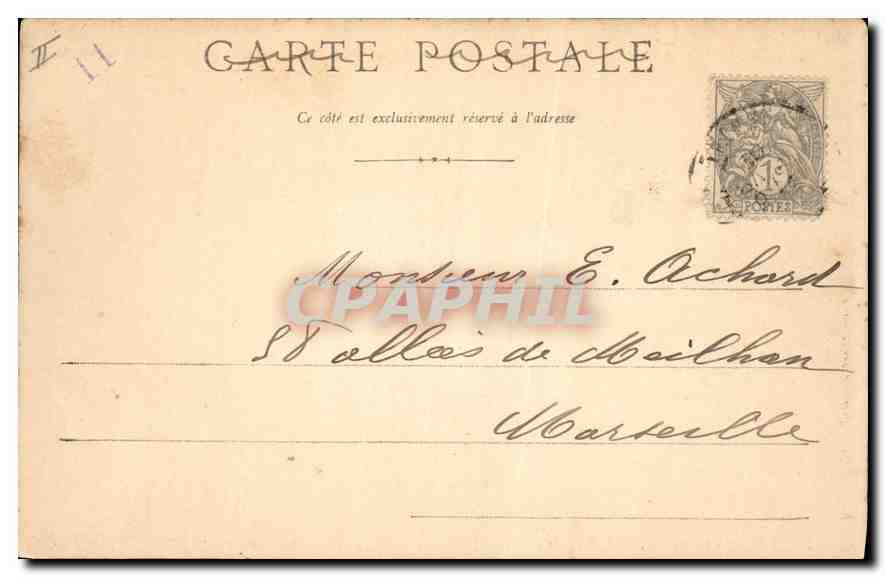 II
11
CARTE POSTALE
Ce côté est exclusivement réservé à l'adresse
1
POSTES
Monsieur E. Achard
CPAPHIL
58 allées de Meilhan
Marseille